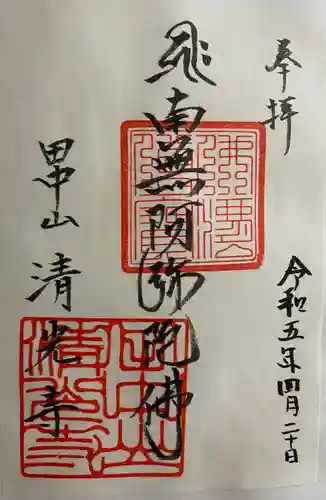 奉拝
令和五年四月二十日
南無阿弥陀佛
田中山 清光寺